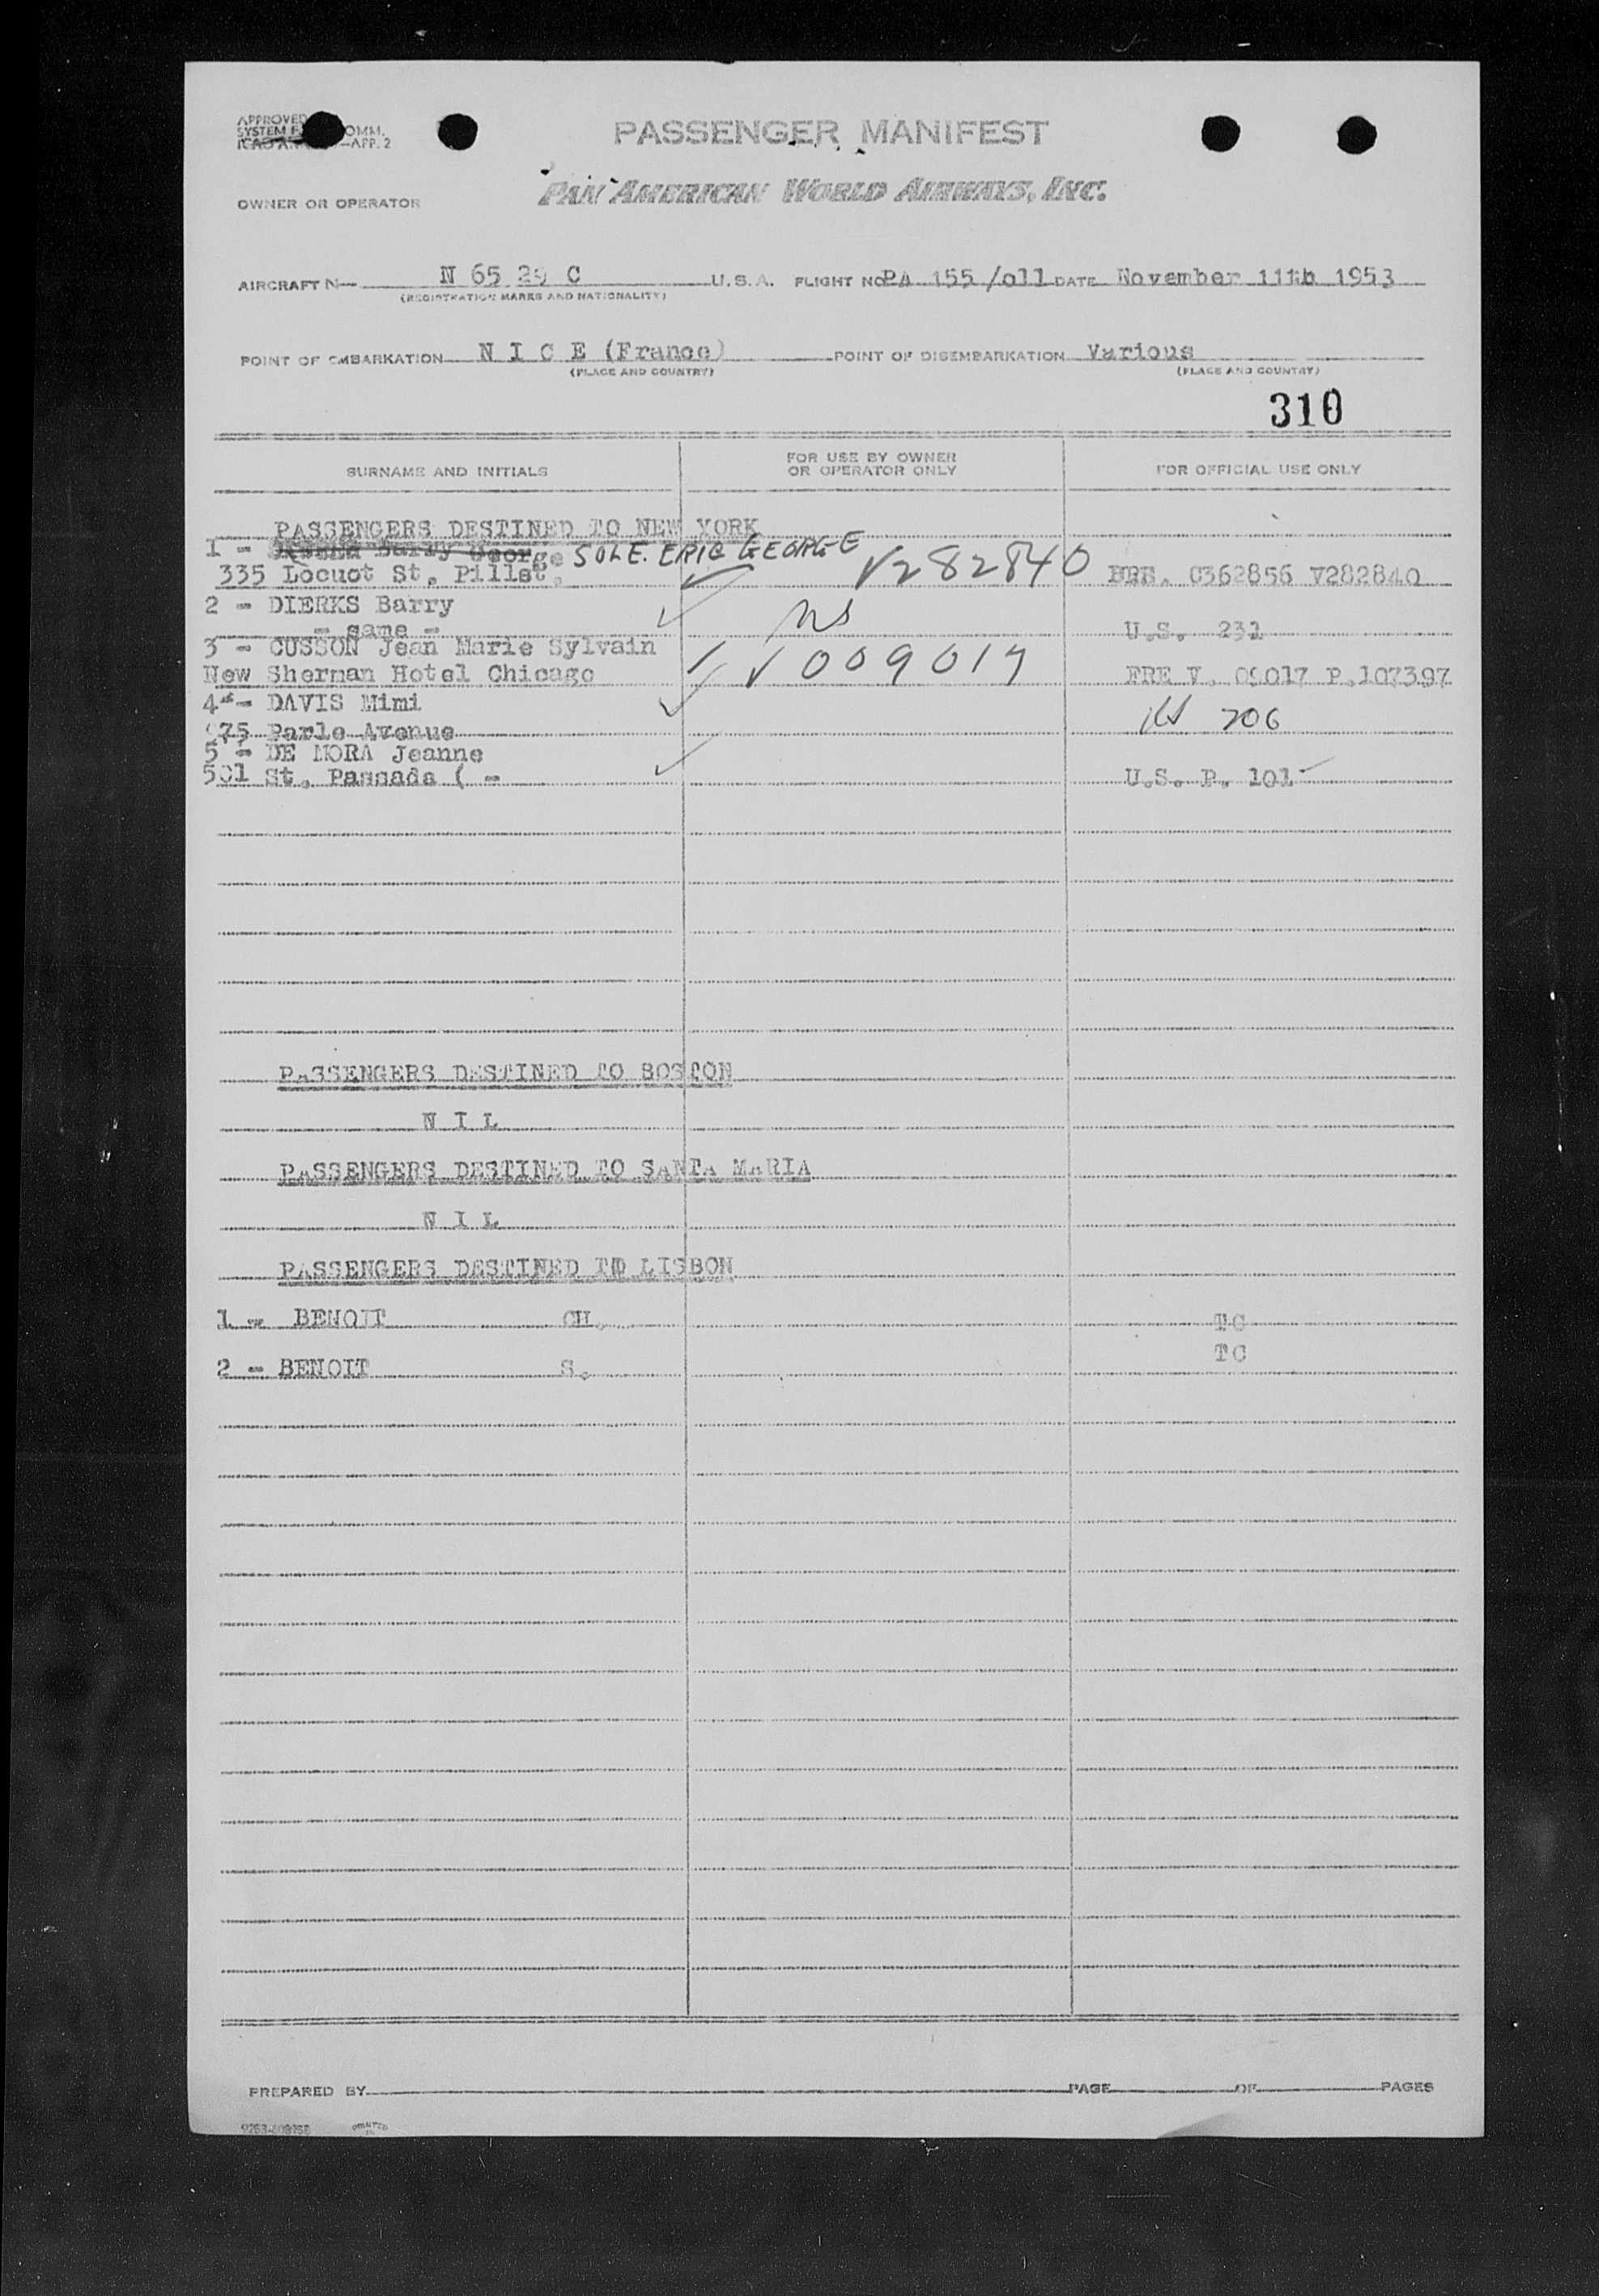 PASSENGER MANIFEST
APPROVED
SYSTEM COMM.
ICAO —APP. 2
OWNER OR OPERATOR PAN AMERICAN WORLD AIRWAYS, INC.
AIRCRAFT N— N 65 29 C U.S.A. FLIGHT NO PA 155/011 DATE November 11th 1953
(REGISTRATION MARKS AND NATIONALITY)
POINT OF EMBARKATION N I C E (France) POINT OF DISEMBARKATION Various
(PLACE AND COUNTRY) (PLACE AND COUNTRY)
310
SURNAME AND INITIALS FOR USE BY OWNER OR OPERATOR ONLY FOR OFFICIAL USE ONLY
PASSENGERS DESTINED TO NEW YORK
1 - Barry George SOLE. ERIC GEORGE V282840
335 Locuot St. Pillst, BRE. C362856 V282840
2 - DIERKS Barry
- same - US U.S. 231
3 - CUSSON Jean Marie Sylvain
New Sherman Hotel Chicago V 009017 FRE V. 09017 P.107397
4 - DAVIS Mimi US 206
75 Parle Avenue
5 - DE MORA Jeanne
501 St. Passada ( - U.S. P. 101
PASSENGERS DESTINED TO BOSTON
N I L
PASSENGERS DESTINED TO SANTA MARIA
N I L
PASSENGERS DESTINED TO LISBON
1 - BENOIT CH. TC
2 - BENOIT S. TC
PREPARED BY PAGE OF PAGES
PRINTED